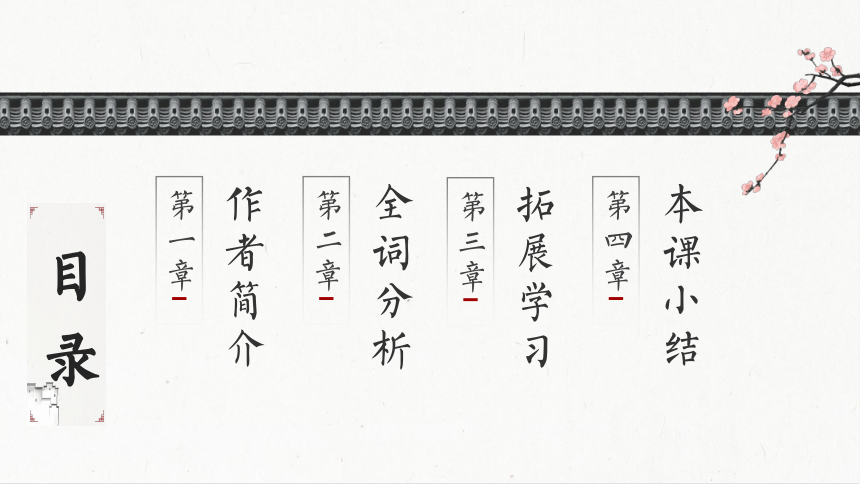 目录
第一章
作者简介
第二章
全词分析
第三章
拓展学习
第四章
本课小结